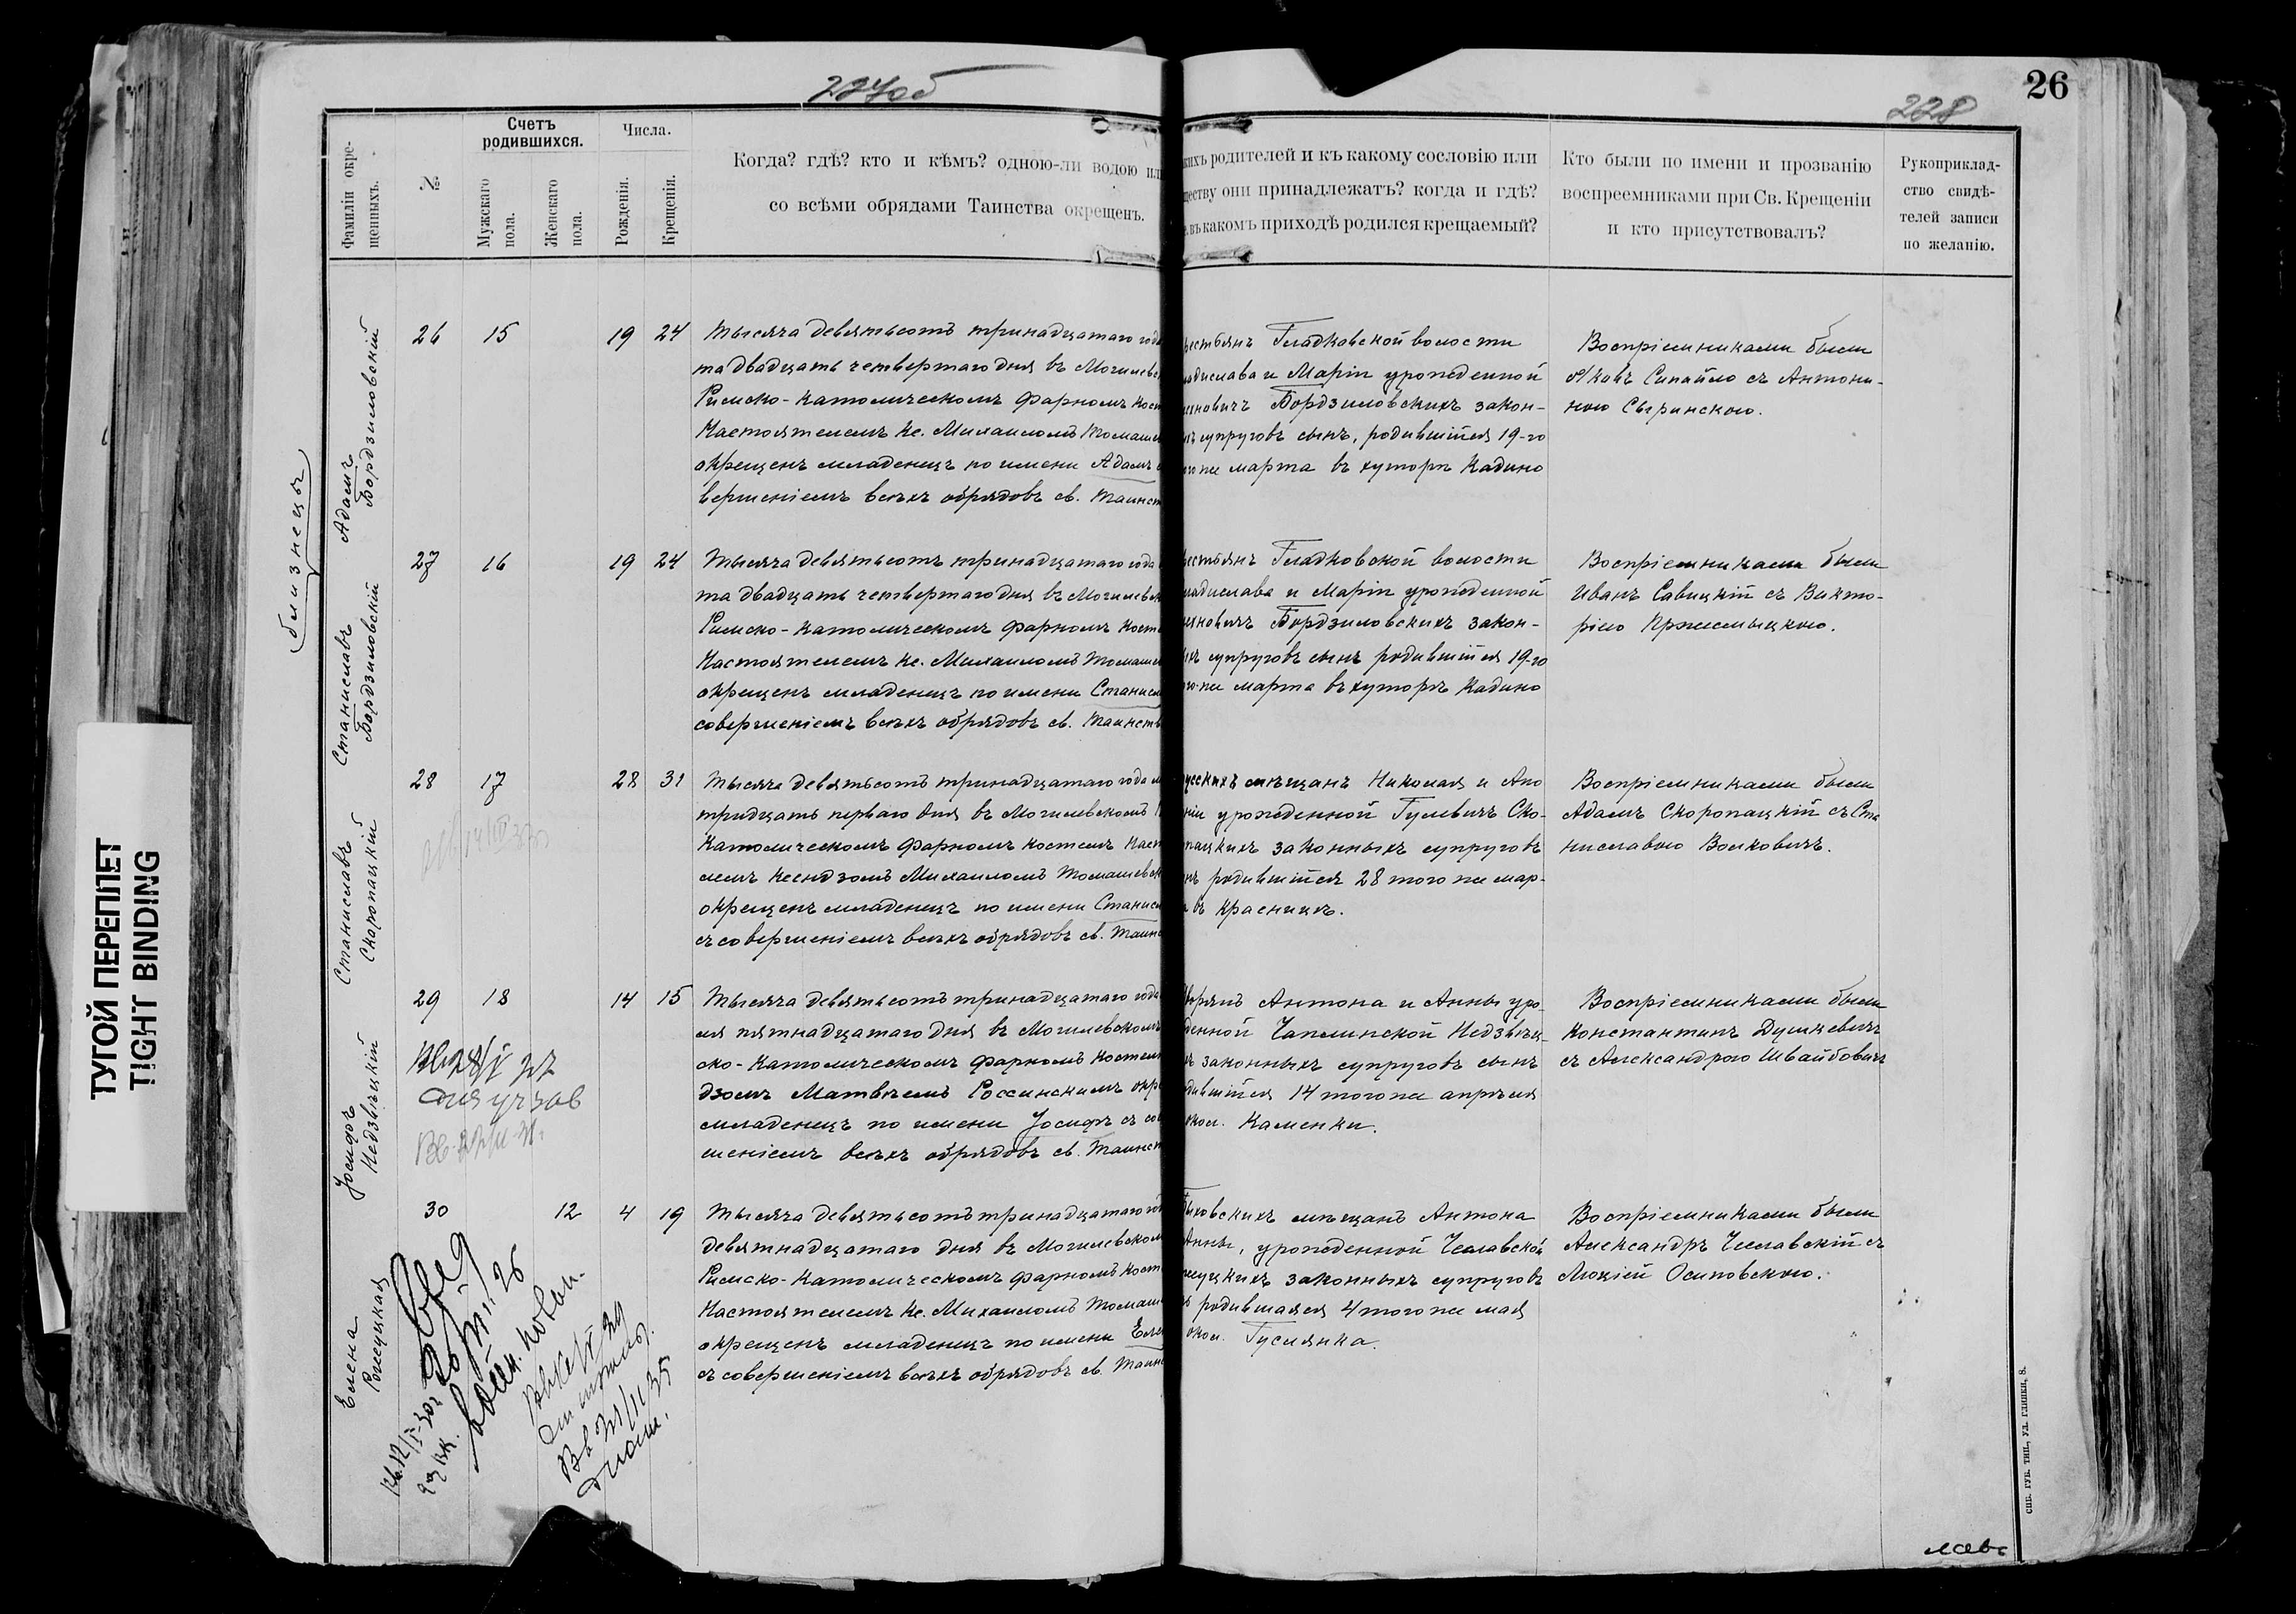 227об
26
228
ТУГОЙ ПЕРЕПЛЕТ
TIGHT BINDING
Фамиліи окре-
щенныхъ.
№
Счетъ
родившихся.
Мужскаго
пола.
Женскаго
пола.
Числа.
Рожденія.
Крещенія.
Когда? гдѣ? кто и кѣмъ? одною-ли водою ил
со всѣми обрядами Таинства окрещенъ.
кихъ родителей и къ какому сословію или
ществу они принадлежатъ? когда и гдѣ?
въ какомъ приходѣ родился крещаемый?
Кто были по имени и прозванію
воспреемниками при Св. Крещеніи
и кто присутствовалъ?
Рукоприклад-
ство свидѣ-
телей записи
по желанію.
близнецы
Адамъ
Бордзиловскій
26 15 19 24
Тысяча девятьсотъ тринадцатаго года
та двадцать четвертаго дня въ Могилевс
Римско-Католическомъ фарномъ кост
Настоятелемъ кс. Михаиломъ Томаше
окрещенъ младенецъ по имени Адамъ
вершеніемъ всѣхъ обрядовъ св. Таинст
естьянъ Гладковской волости
адислава и Маріи урожденной
еновичъ Бордзиловскихъ закон-
хъ супруговъ сынъ, родившійся 19-го
го же марта въ хуторѣ Кадино
Воспріемниками были
Яковъ Сипайло съ Антони-
ною Сыринскою.
Станиславъ
Бордзиловскій
27 16 19 24
Тысяча девятьсотъ тринадцатаго года
та двадцать четвертаго дня въ Могилевск
Римско-Католическомъ фарномъ кост
Настоятелемъ кс. Михаиломъ Томаше
окрещенъ младенецъ по имени Станисл
совершеніемъ всѣхъ обрядовъ св. Таинств
естьянъ Гладковской волости
ладислава и Маріи урожденной
еновичъ Бордзиловскихъ закон-
хъ супруговъ сынъ родившійся 19-го
го-же марта въ хуторѣ Кадино
Воспріемниками были
Иванъ Савицкій съ Викто-
ріею Пржесмыцкою.
Станиславъ
Скоропацкій
28 17 28 31
Тысяча девятьсотъ тринадцатаго года м
тридцать перваго дня въ Могилевскомъ
Католическомъ фарномъ костелѣ Наст
лемъ ксендзомъ Михаиломъ Томашевск
окрещенъ младенецъ по имени Станисл
съ совершеніемъ всѣхъ обрядовъ св. Таинс
усскихъ мѣщанъ Николая и Апо
ніи урожденной Гулевичъ Ско-
пацкихъ законныхъ супруговъ
нъ родившійся 28 того же мар-
а въ Красницѣ.
Воспріемниками были
Адамъ Скоропацкій съ Ста
ниславою Волковичъ.
Іосифъ
Недзвѣцкій
29 18 14 15
Тысяча девятьсотъ тринадцатаго года
ля пятнадцатаго дня въ Могилевскомъ
ско-Католическомъ фарномъ костел
дзомъ Матвѣемъ Россинскимъ окре
младенецъ по имени Іосифъ съ сов
шеніемъ всѣхъ обрядовъ св. Таинст
ворянъ Антона и Анны уро-
денной Чаплинской Недзвѣц-
ъ законныхъ супруговъ сынъ
дившійся 14 того же апрѣля
окол. Каменки.
Воспріемниками были
Константинъ Душкевичъ
съ Александрою Швайбовичъ
Елена
30 12 4 19
Тысяча девятьсотъ тринадцатаго год
девятнадцатаго дня въ Могилевском
Римско-Католическомъ фарномъ кост
Настоятелемъ кс. Михаиломъ Томаше
окрещенъ младенецъ по имени Еле
съ совершеніемъ всѣхъ обрядовъ св. Таинс
Быховскихъ мѣщанъ Антона
Анны, урожденной Чеславской
законныхъ супруговъ
ь родившаяся 4 того же мая
окол. Гуслянка.
Воспріемниками были
Александръ Чеславскій съ
Люціей Осиповскою.
СПБ. ГУБ. ТИП., УЛ. ГЛИНКИ, 8.